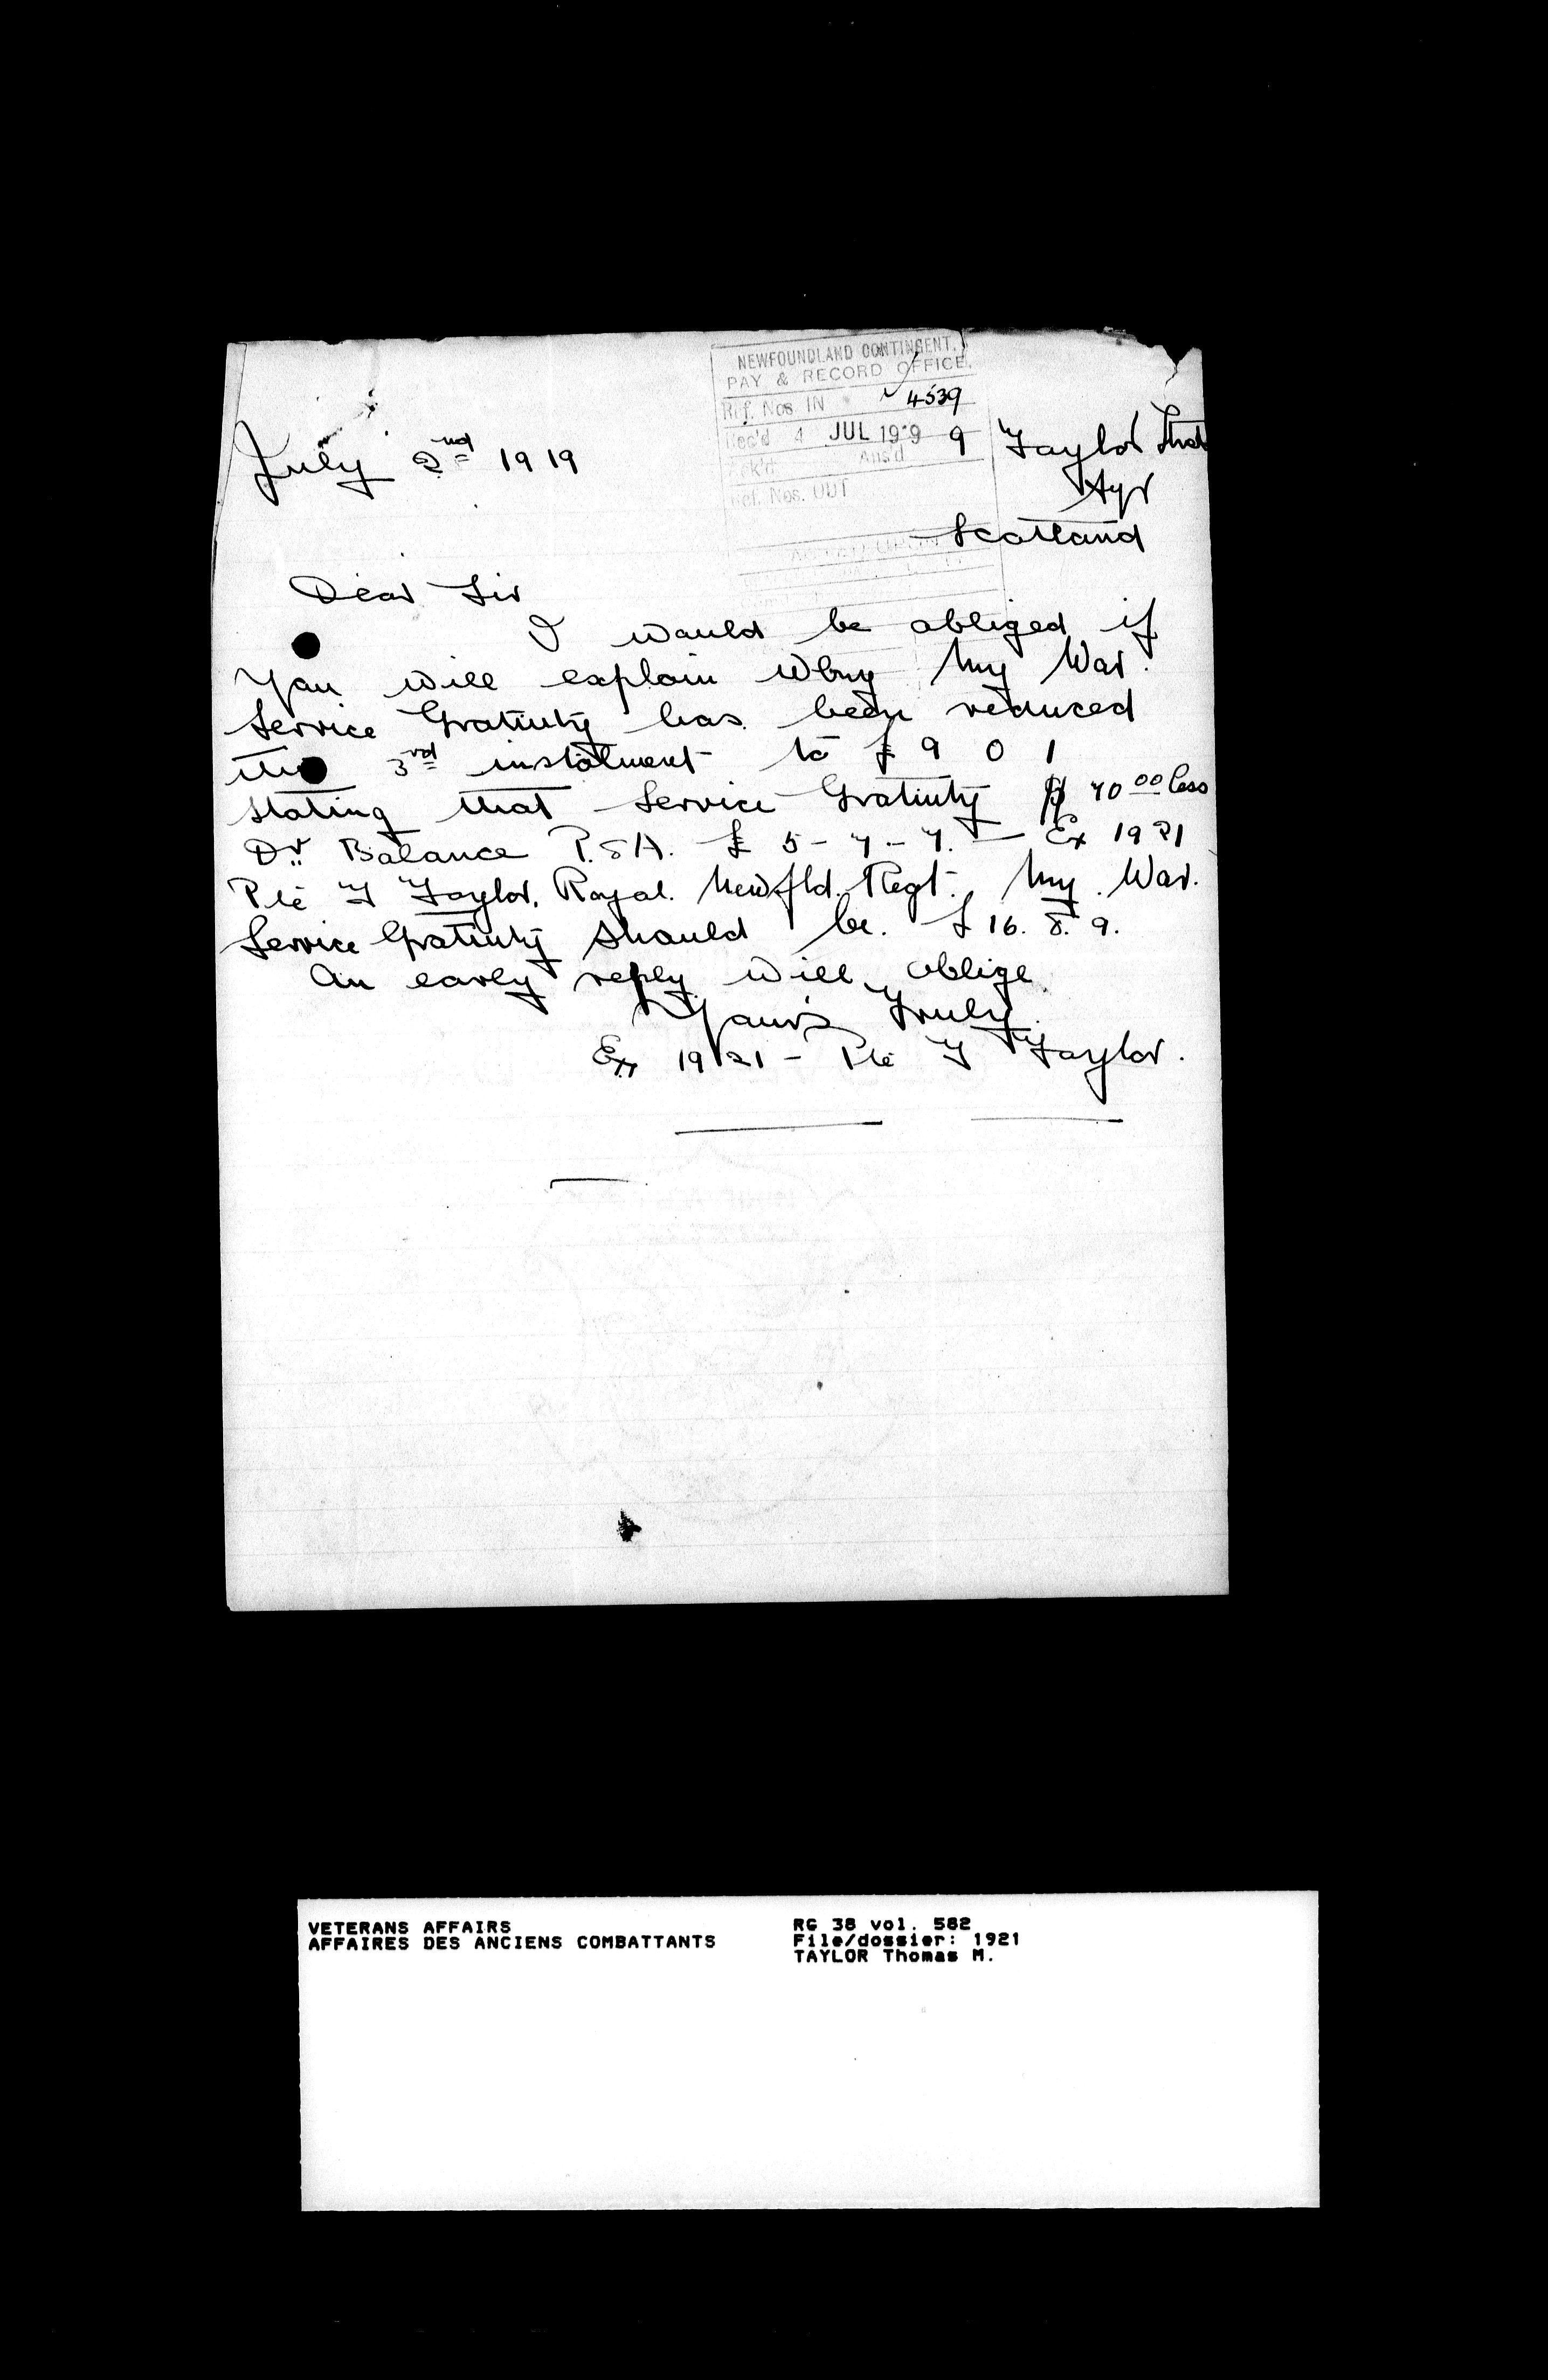 NEWFOUNDLAND CONTINGENT.
PAY & RECORD OFFICE.
Ref. Nos. IN 4539
Rec'd 4 JUL 1919
Ack'd Ans'd
Ref. Nos. OUT
July 2nd 1919
9 Taylor Street
Ayr
Scotland
Dear Sir
I would be obliged if
You will explain Why My War.
Service Gratiuty has been reduced
the 3rd instalment to £ 9 0 1
stating that Service Gratiuty $ 70 00 less
Dr Balance P.S.A. £ 5 - 7 - 7. — Ex 1921
Pte T Taylor, Royal. Newfld. Regt. My War.
Service Gratiuty should be. £ 16. 8. 9.
An early reply will oblige
Yours Truly.
Ex 1921 - Pte T Taylor.
VETERANS AFFAIRS
AFFAIRES DES ANCIENS COMBATTANTS
RG 38 vol. 582
File/dossier: 1921
TAYLOR Thomas M.